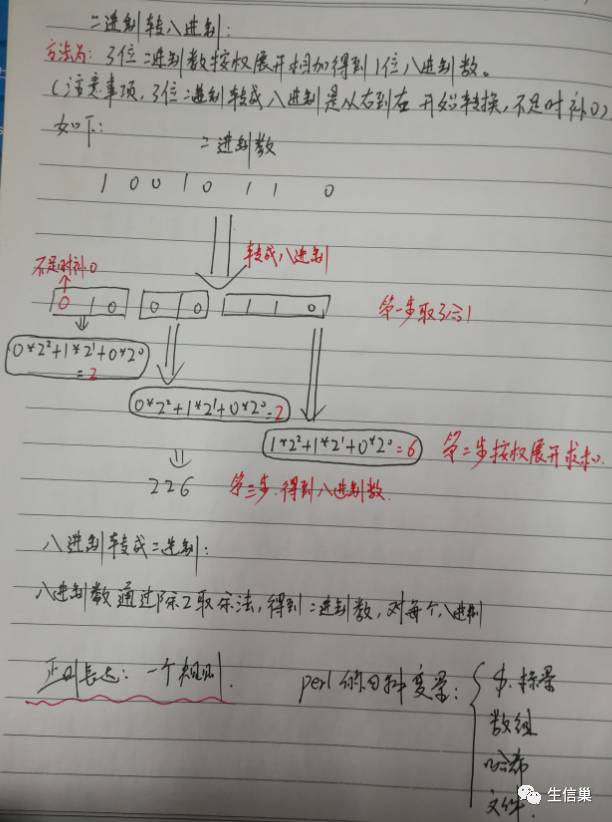 二进制转八进制:
方法为: 3位二进制数按权展开相加得到1位八进制数。
(注意事项, 3位二进制转成八进制是从右到左开始转换, 不足时补0)
如下:
二进制数
1 0 0 1 0 1 1 0
转成八进制
不足时补0
0 1 0 0 1 0 1 1 0
第一步取3合1
0*2²+1*2¹+0*2⁰
=2
0*2²+1*2¹+0*2⁰=2
1*2²+1*2¹+0*2⁰=6
第二步按权展开求和
226 第三步.得到八进制数.
八进制转成二进制:
八进制数通过除2取余法, 得到二进制数, 对每个八进制
正则表达: 一个规则.
perl的四种变量:
标量
数组
哈希
文件.
生信巢